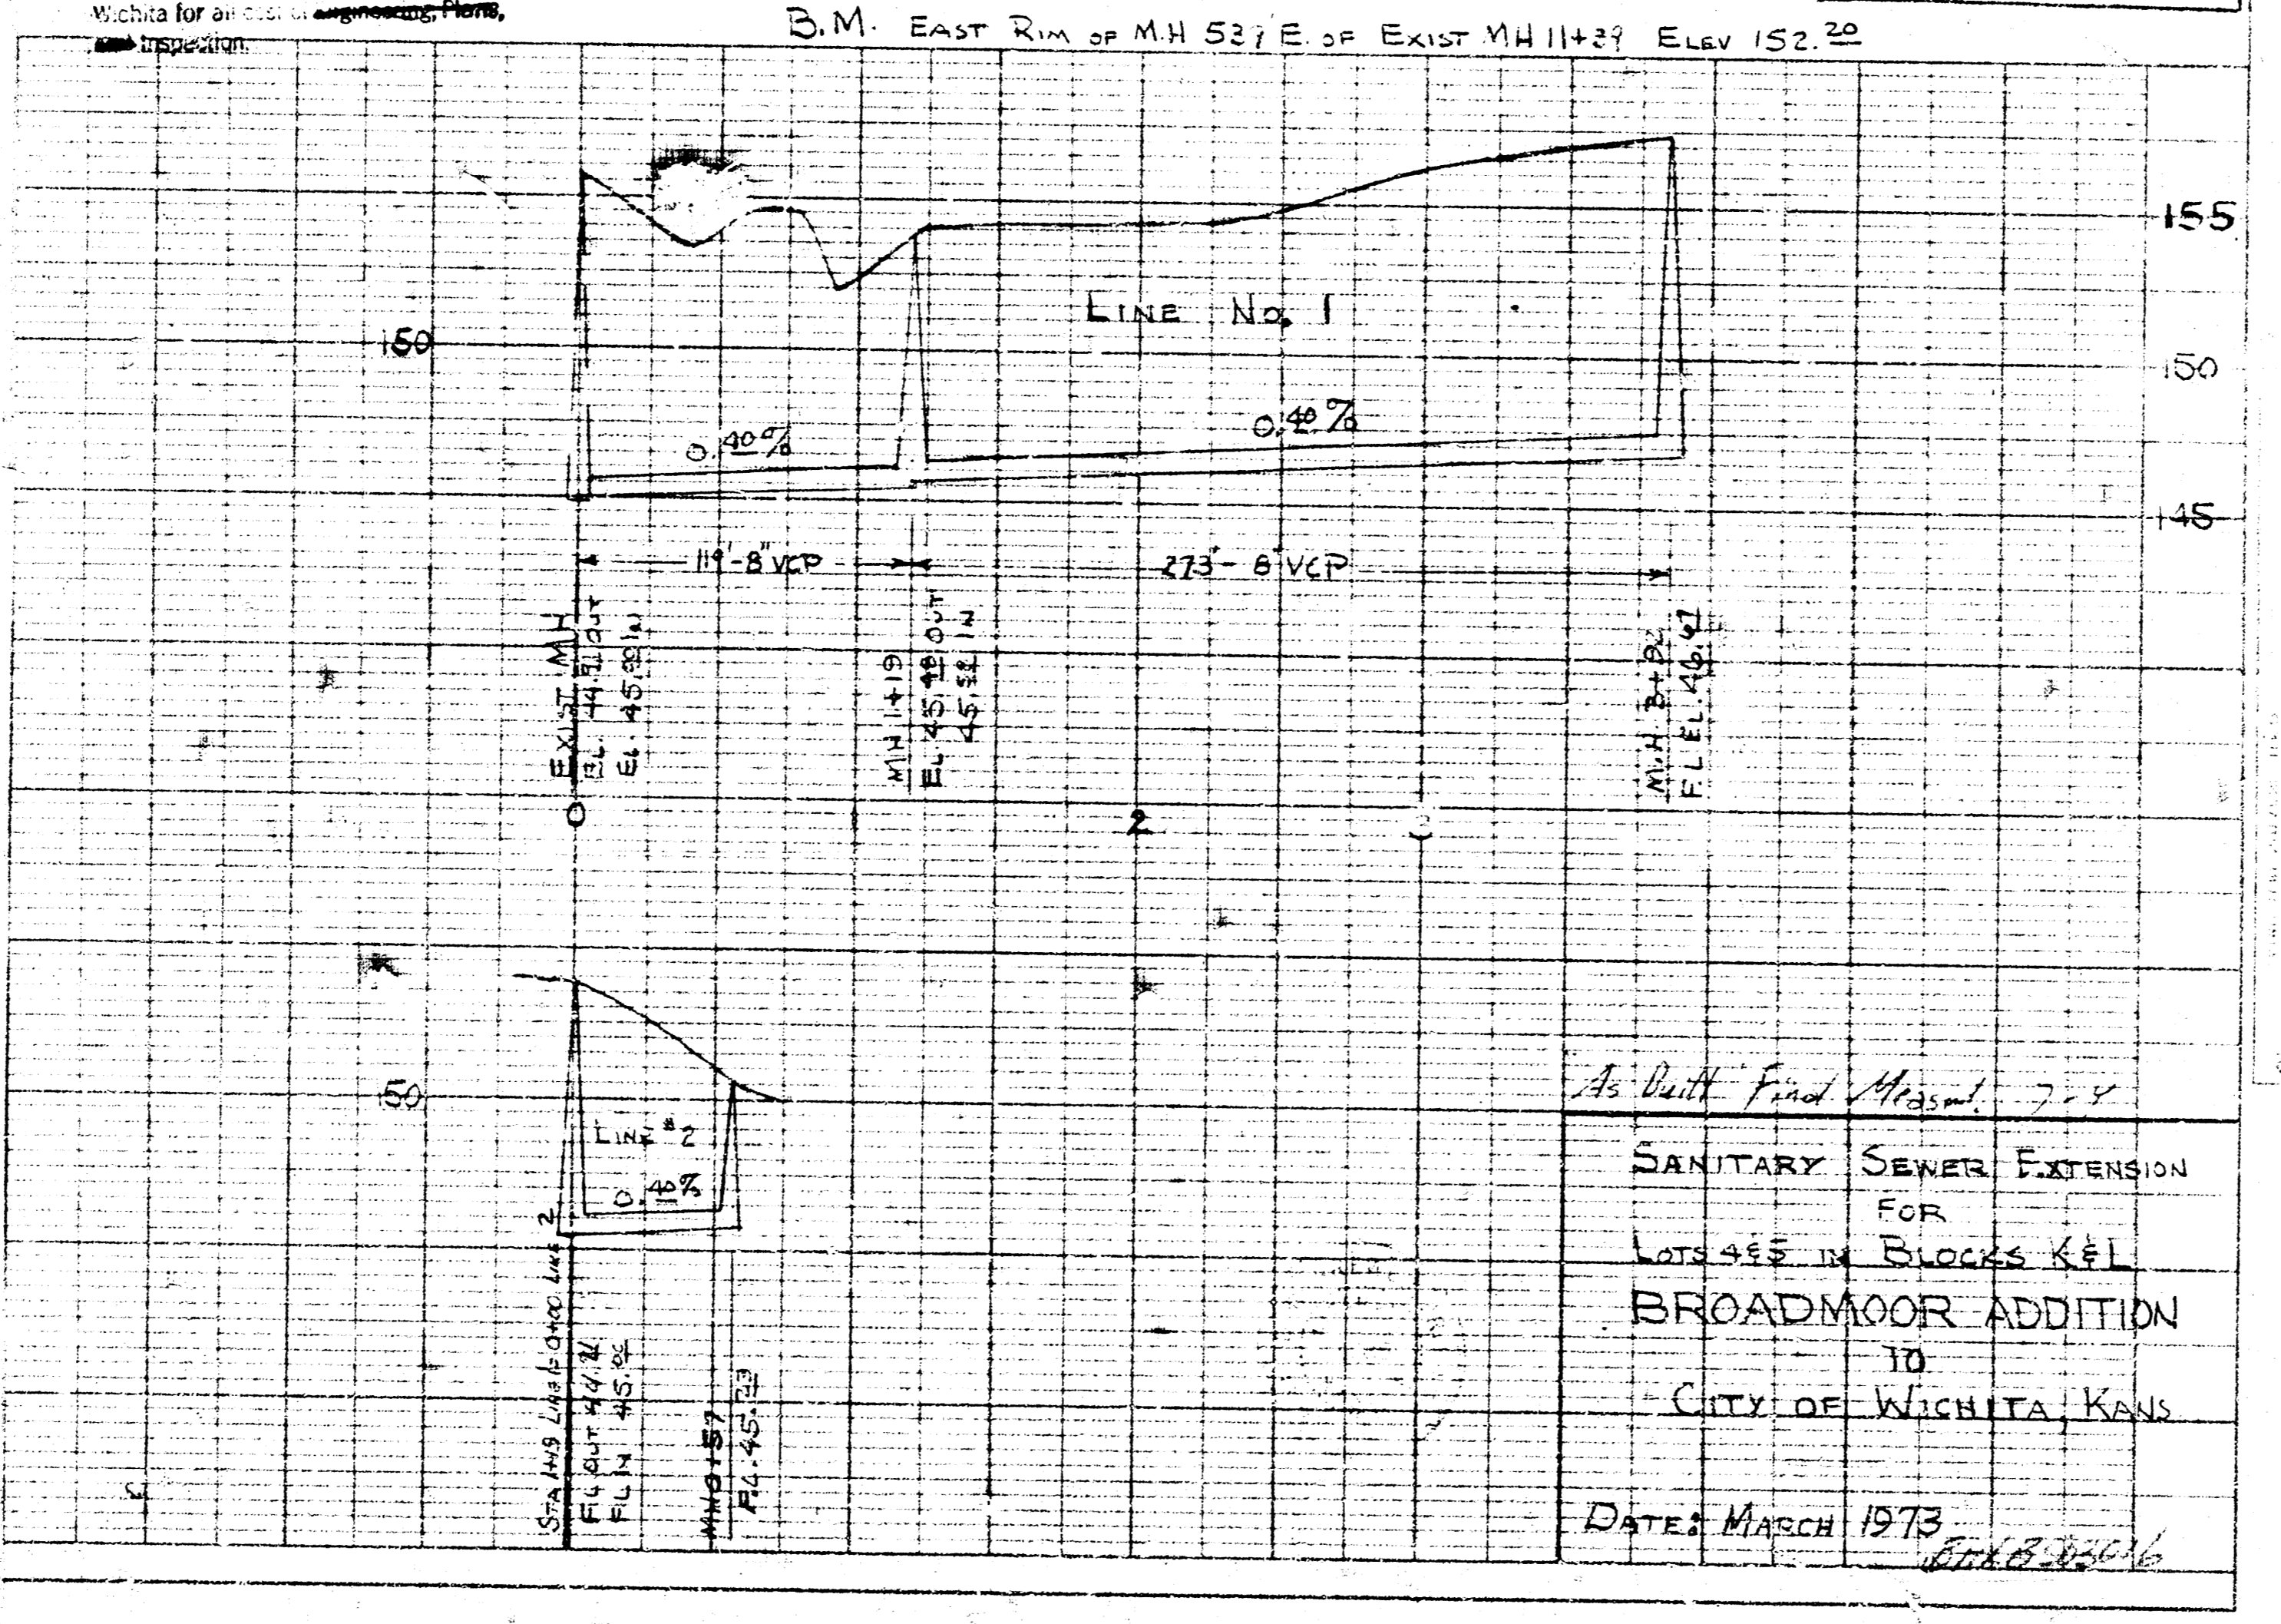 Wichita for all cost of engineering, Plans,
and Inspection.
B.M. EAST RIM OF M.H 537' E. OF EXIST MH 11+39 ELEV 152.20
155
LINE No. 1
150
150
0.40%
0.40%
145
119'-8" VCP
273'-8" VCP
EXIST MH
EL. 44.91 OUT
EL. 45.00 IN
MH 1+19
EL 45.48 OUT
45.58 IN
M.H. 3+92
F.L. EL. 46.67
0
2
50
LINE #2
0.40%
STA 1+19 LINE 1= 0+00 LINE 2
FL OUT
FL IN 45.00
MH 0+57
F.L. 45.23
As Built Final Measmt.
SANITARY SEWER EXTENSION
FOR
LOTS 4&5 IN BLOCKS K&L
BROADMOOR ADDITION
TO
CITY OF WICHITA, KANS
DATE: MARCH 1973